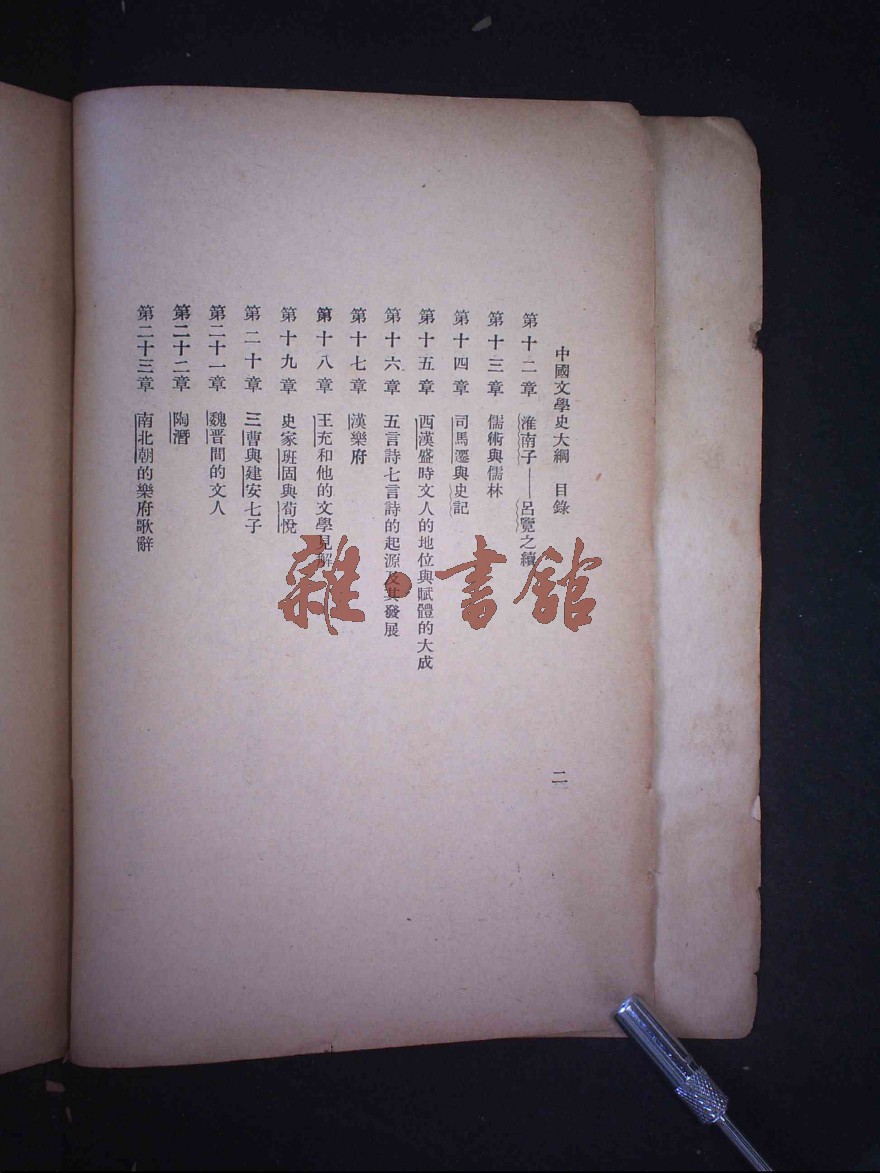 中國文學史大綱　目錄
二
第十二章　淮南子——呂覽之續
第十三章　儒術與儒林
第十四章　司馬遷與史記
第十五章　西漢盛時文人的地位與賦體的大成
第十六章　五言詩七言詩的起源及其發展
第十七章　漢樂府
第十八章　王充和他的文學見解
第十九章　史家班固與荀悅
第二十章　三曹與建安七子
第二十一章　魏晋間的文人
第二十二章　陶潛
第二十三章　南北朝的樂府歌辭
雜·書館